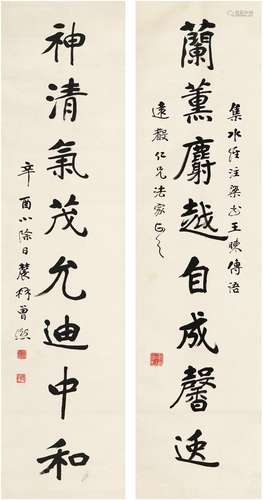 集水經注梁書王暕傳語
蘭薰麝越自成馨逸
遠毅仁兄法家正之
神清氣茂允迪中和
辛酉小除日農髯曾熙